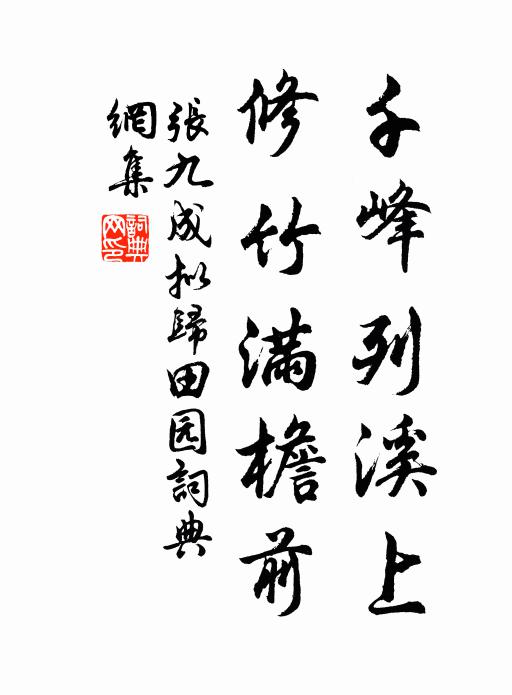 千峰列溪上
修竹满檐前
張九成拟歸田园詞典
網集
詞典网印